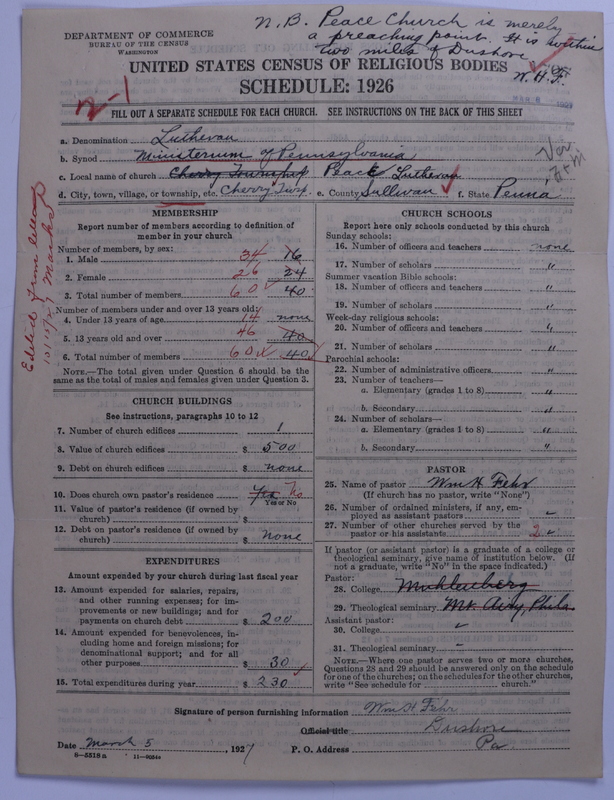 N.B. Peace Church is merely
a preaching point. It is within
two miles of Dushore
W.H.F.
DEPARTMENT OF COMMERCE
BUREAU OF THE CENSUS
WASHINGTON
UNITED STATES CENSUS OF RELIGIOUS BODIES
SCHEDULE: 1926
2-1
FILL OUT A SEPARATE SCHEDULE FOR EACH CHURCH. SEE INSTRUCTIONS ON THE BACK OF THIS SHEET
a. Denomination Lutheran
b. Synod Ministerium of Pennsylvania
c. Local name of church Cherry Township Peace Lutheran
d. City, town, village, or township, etc. Cherry Twp. e. County Sullivan f. State Penna
MEMBERSHIP
Report number of members according to definition of
member in your church
Number of members, by sex:
1. Male 34 16
2. Female 26 24
3. Total number of members 60 40
Number of members under and over 13 years old:
4. Under 13 years of age 14 none
5. 13 years old and over 46 40
6. Total number of members 60 40
NOTE.—The total given under Question 6 should be the
same as the total of males and females given under Question 3.
CHURCH BUILDINGS
See instructions, paragraphs 10 to 12
7. Number of church edifices 1
8. Value of church edifices $ 500
9. Debt on church edifices $ none
10. Does church own pastor's residence Yes No
Yes or No
11. Value of pastor's residence (if owned by
church) $
12. Debt on pastor's residence (if owned by
church) $ none
EXPENDITURES
Amount expended by your church during last fiscal year
13. Amount expended for salaries, repairs,
and other running expenses; for im-
provements or new buildings; and for
payments on church debt $ 200
14. Amount expended for benevolences, in-
cluding home and foreign missions; for
denominational support; and for all
other purposes $ 30
15. Total expenditures during year $ 230
CHURCH SCHOOLS
Report here only schools conducted by this church
Sunday schools:
16. Number of officers and teachers none
17. Number of scholars "
Summer vacation Bible schools:
18. Number of officers and teachers "
19. Number of scholars "
Week-day religious schools:
20. Number of officers and teachers "
21. Number of scholars "
Parochial schools:
22. Number of administrative officers "
23. Number of teachers—
a. Elementary (grades 1 to 8) "
b. Secondary "
24. Number of scholars—
a. Elementary (grades 1 to 8) "
b. Secondary "
PASTOR
25. Name of pastor Wm H. Fehr
(If church has no pastor, write "None")
26. Number of ordained ministers, if any, em-
ployed as assistant pastors
27. Number of other churches served by the
pastor or his assistants 2
If pastor (or assistant pastor) is a graduate of a college or
theological seminary, give name of institution below. (If
not a graduate, write "No" in the space indicated.)
Pastor:
28. College Muhlenberg
29. Theological seminary Mt. Airy, Phila
Assistant pastor:
30. College
31. Theological seminary
NOTE.—Where one pastor serves two or more churches,
Questions 28 and 29 should be answered only on the schedule
for one of the churches; on the schedules for the other churches,
write "See schedule for ______ church."
Signature of person furnishing information Wm H. Fehr
Official title Dushore
Date March 5, 1927 P. O. Address Pa
8-5518a 11-9054a